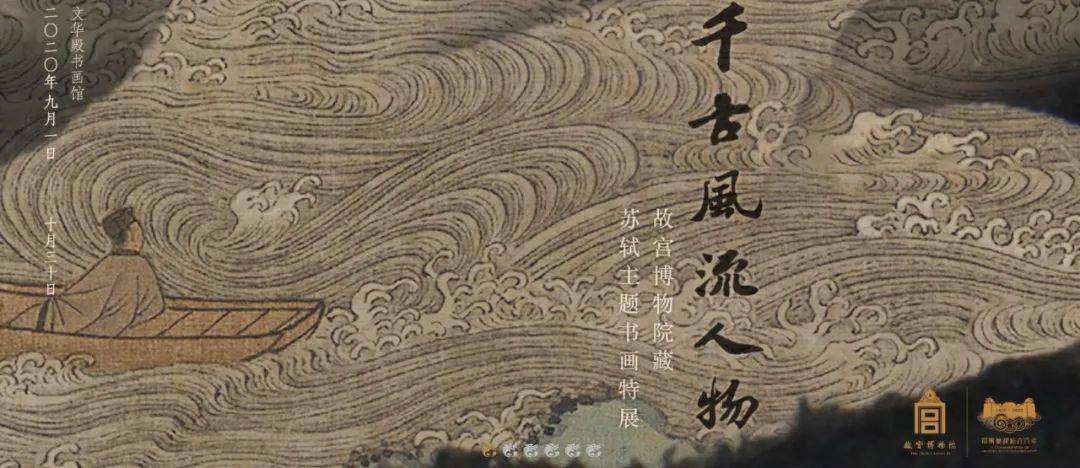 千古風流人物
故宫博物院藏
苏轼主题书画特展
文华殿书画馆
二〇二〇年九月一日
十月三十日
故宫博物院